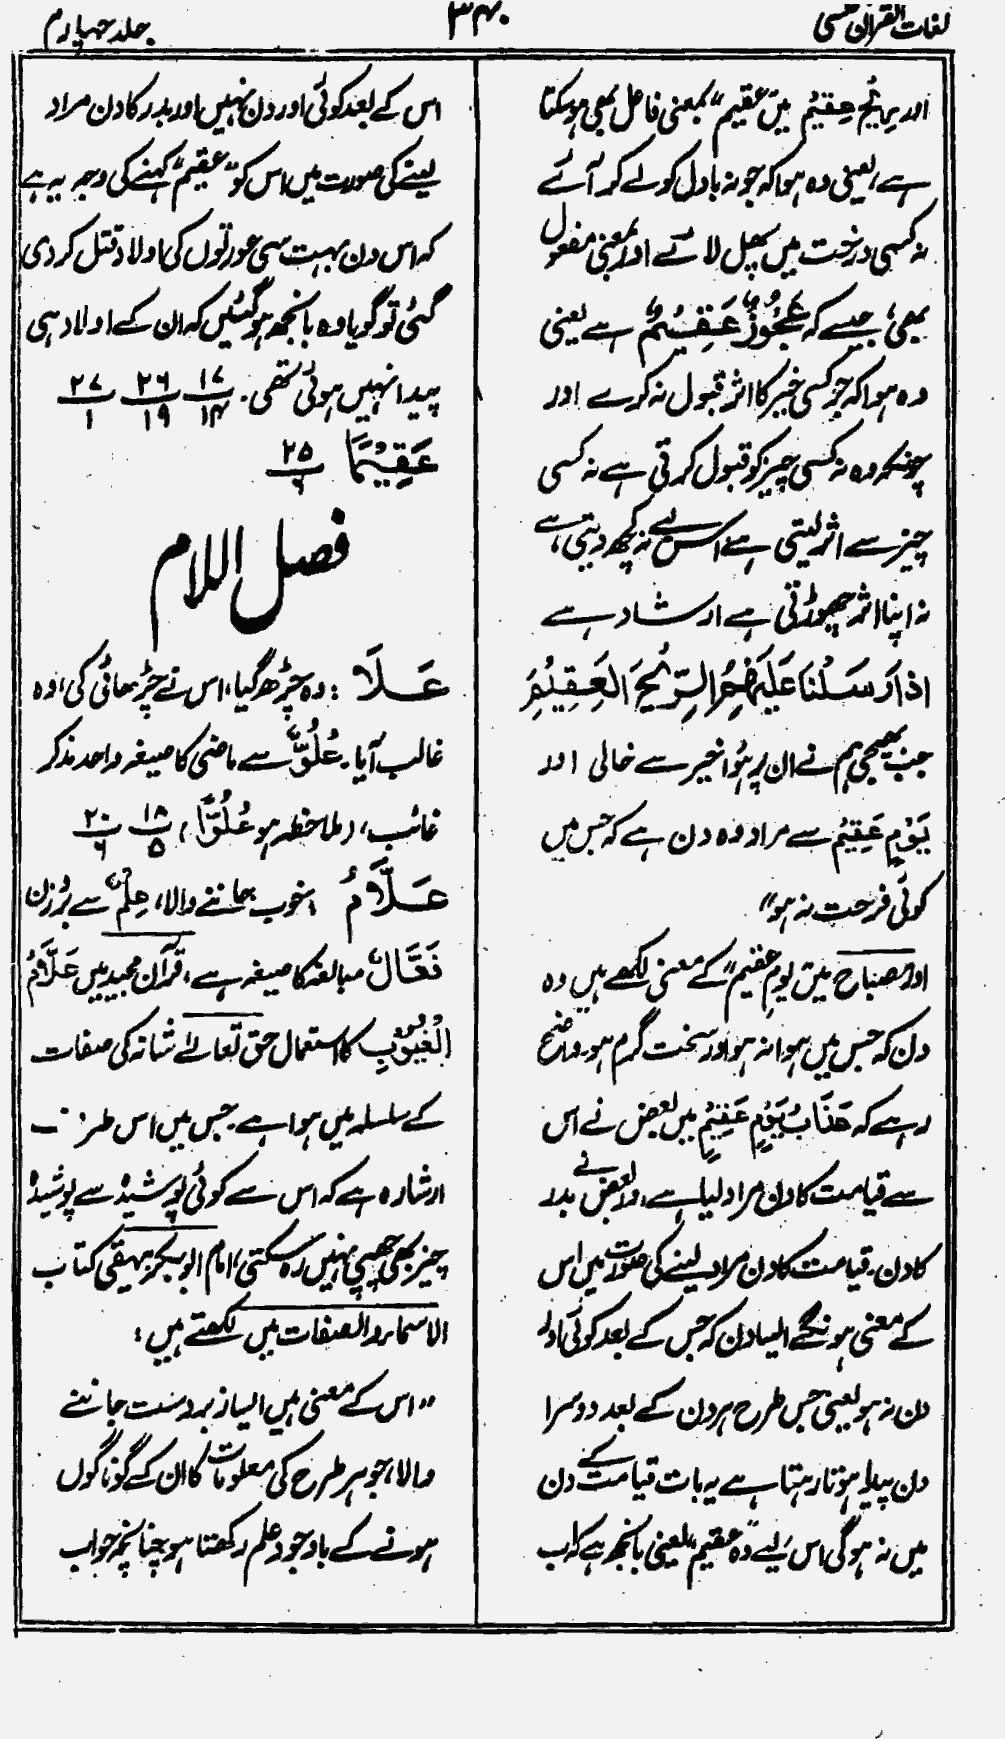 لغات القرآن
۳۴۰
جلد چہارم
اور رِیْحٌ عَقِیْمٌ میں "عقیم" بمعنی فاعل بھی ہو سکتا
ہے، یعنی وہ ہوا کہ جو نہ بادل کو لے کر آئے
نہ کسی درخت میں پھل لائے اور بمعنی مفعول
بھی، جیسے کہ عَجُوْزٌ عَقِیْمٌ ہے یعنی
وہ ہوا کہ جو کسی خیر کا اثر قبول نہ کرے اور
چونکہ وہ نہ کسی چیز کو قبول کرتی ہے نہ کسی
چیز سے اثر لیتی ہے اس لیے نہ کچھ دیتی ہے
نہ اپنا اثر چھوڑتی ہے ارشاد ہے
اِذْ اَرْسَلْنَا عَلَیْهِمُ الرِّیْحَ الْعَقِیْمَ
جب بھیجی ہم نے ان پر ہوا خیر سے خالی اور
یَوْمٍ عَقِیْمٍ سے مراد وہ دن ہے کہ جس میں
کوئی فرحت نہ ہو"
اور مصباح میں "یوم عقیم" کے معنی لکھے ہیں وہ
دن کہ جس میں ہوا نہ ہو اور سخت گرم ہو۔ واضح
رہے کہ عَذَابُ یَوْمٍ عَقِیْمٍ میں بعض نے اس
سے قیامت کا دن مراد لیا ہے، اور بعض نے بدر
کا دن، قیامت کا دن مراد لینے کی صورت میں اس
کے معنی ہونگے ایسا دن کہ جس کے بعد کوئی اور
دن نہ ہو یعنی جس طرح ہر دن کے بعد دوسرا
دن پیدا ہوتا رہتا ہے یہ بات قیامت کے دن
میں نہ ہو گی اس لیے وہ "عقیم" یعنی بانجھ ہے کہ اب
اس کے بعد کوئی اور دن نہیں، اور بدر کا دن مراد
لینے کی صورت میں اس کو "عقیم" کہنے کی وجہ یہ ہے
کہ اس دن بہت سی عورتوں کی اولاد قتل کر دی
گئی تو گویا وہ بانجھ ہو گئیں کہ ان کے اولاد ہی
پیدا نہیں ہوئی تھی۔ ۱۷/۱۴ ۲۶/۱۹ ۲۷/۱
عَقِیْمًا ۲۵/۶
فصل اللام
عَلَا : وہ چڑھ گیا، اس نے چڑھائی کی، وہ
غالب آیا۔ عُلُوٌّ سے ماضی کا صیغہ واحد مذکر
غائب، (ملاحظہ ہو عُلُوًّا) ۱۸/۵ ۲۰/۶
عَلَّامُ : خوب جاننے والا، عِلْمٌ سے بروزن
فَعَّالٌ مبالغہ کا صیغہ ہے، قرآن مجید میں عَلَّامُ
الْغُیُوْبِ کا استعمال حق تعالےٰ شانہ کی صفات
کے سلسلہ میں ہوا ہے۔ جس میں اس طرف
اشارہ ہے کہ اس سے کوئی پوشیدہ سے پوشیدہ
چیز بھی چھپی نہیں رہ سکتی، امام ابوبکر بیہقی کتاب
الاسماء والصفات میں لکھتے ہیں:
"اس کے معنی ہیں ایسا زبردست جاننے
والا، جو ہر طرح کی معلومات کا ان کے گوناگوں
ہونے کے باوجود علم رکھتا ہو چنانچہ جواب